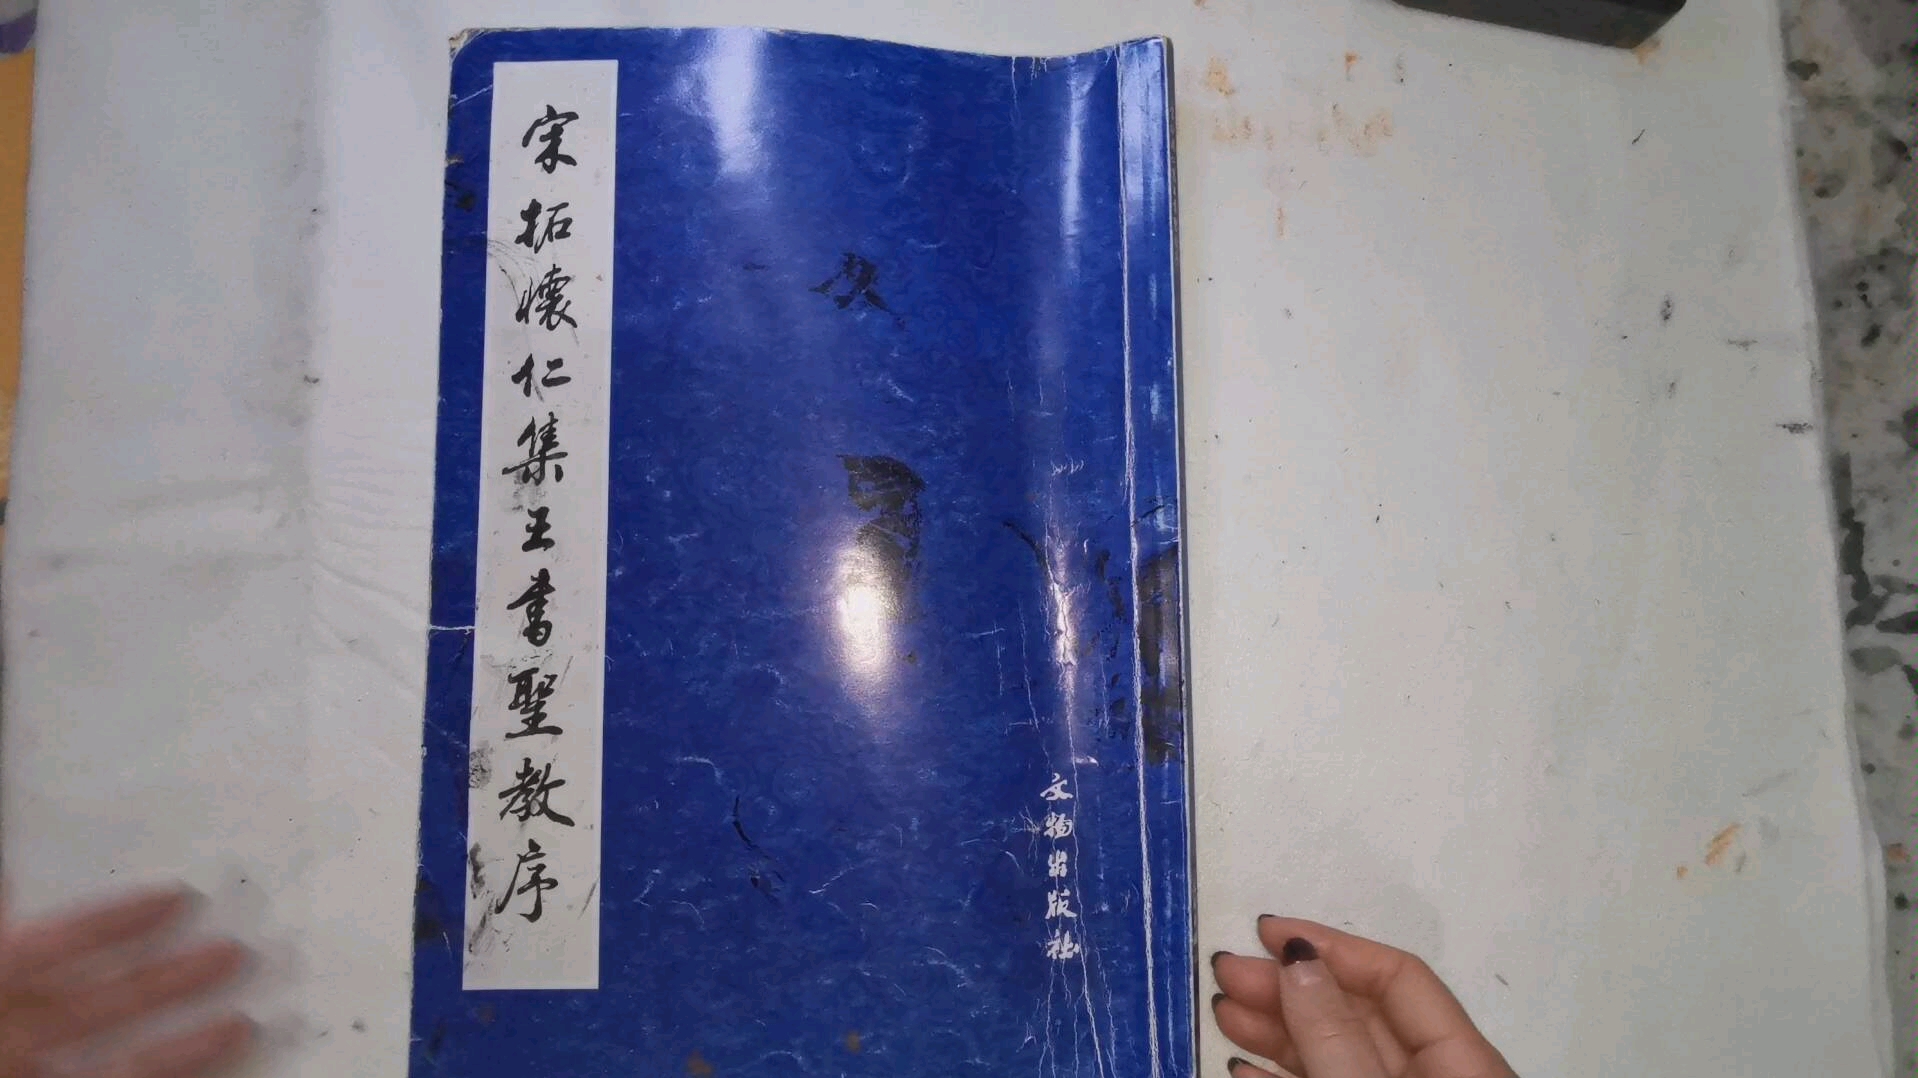 宋拓懷仁集王書聖教序
文物出版社